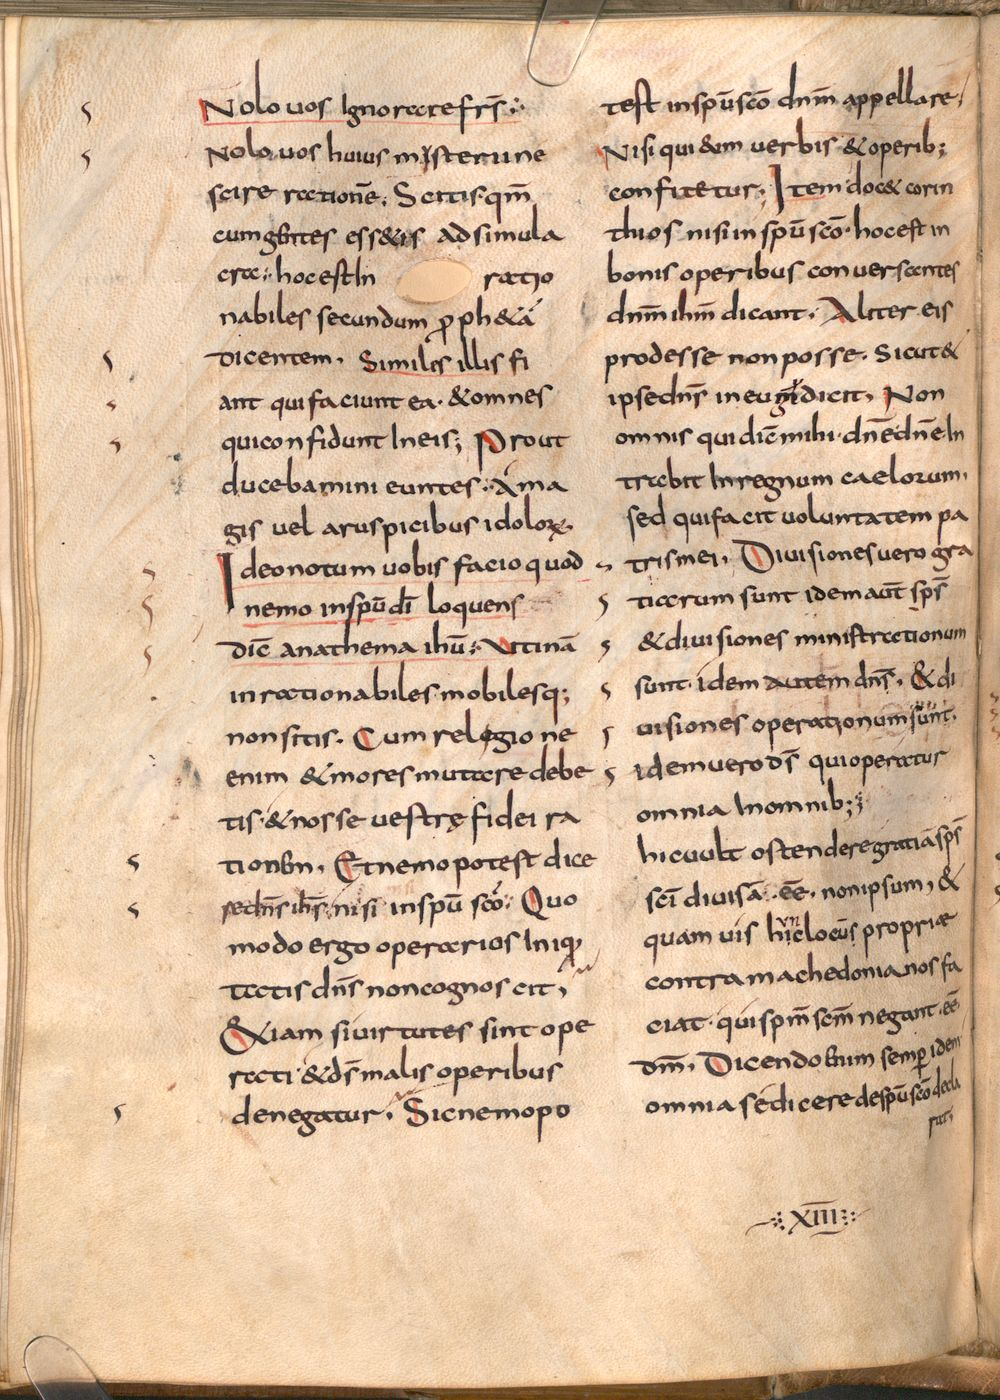 Nolo uos Ignorare frs̄.
Nolo uos huius misterii ne
scire rationē. Scitis qm̄
cum gentes ess&is ad simula
cra: hoc est In ratio
nabiles secundum ꝓph&ā
dicentem. Similes illis fi
ant qui faciunt ea. &omnes
qui confidunt In eis; Prout
ducebamini euntes. A ma
gis uel aruspicibus idoloꝝ.
Ideo notum uobis facio quod
nemo in spū dī loquens
dic̄ anathema ihū. Utinā
inrationabiles mobilesq;
non sitis. Cum religione
enim &mores mutare debe
tis. &nosse uestrę fidei ra
tionem. Et nemo potest dice
re dn̄s ih̄s nisi in spū sc̄o. Quo
modo ergo operarius Iniqui
tatis dn̄s non cognoscit,
&iam si uirtutes sint ope
rati. &ds̄ malis operibus
denegatur. Sic nemo po
test in spū sc̄o dnm̄ appellare.
Nisi qui eum uerbis &operib;
confitetur; Item doc& corin
thios nisi in spū sc̄o. hoc est in
bonis operibus conuersantes
dnm̄ ihm̄ dicant. Aliter eis
prodesse non posse. Sicut&
ipse dn̄s in euḡ dicit. Non
omnis qui dic̄ mihi dn̄e dn̄e In
trabit In regnum caelorum.
sed qui facit uoluntatem pa
tris mei. Diuisiones uero gra
tiarum sunt idem aut̄ sps̄
&diuisiones ministrationum
sunt. idem autem dn̄s. &di
uisiones operationum sunt.
idem uero ds̄ qui operatur
omnia In omnib;
hic uult ostendere gratiā sps̄
sc̄i diuisā. eē. non ipsum, &
quam uis hic locus propriae
contra machedonianos fa
ciat. qui spm̄ scm̄ negant. eē
dm̄. Dicendo enim semꝑ idem
omnia sed icere de spū sc̄o decla
rat.
XIII